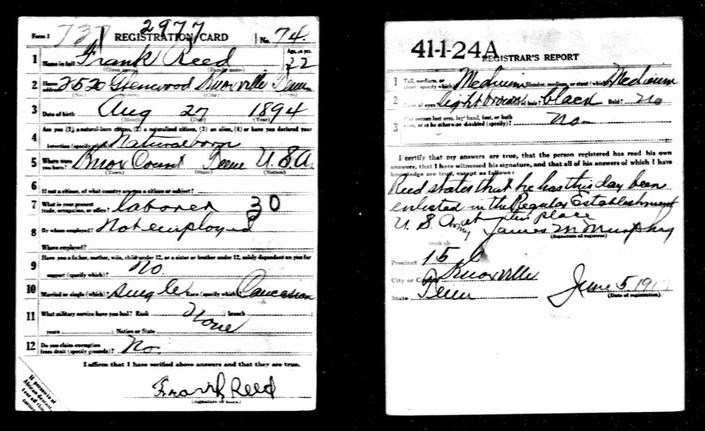 Form 1 737 2977 REGISTRATION CARD No. 74
1 Name in full Frank Reed Age, in yrs. 22
2 Home address 2520 Glenwood Knoxville Tenn
3 Date of birth Aug 27 1894
4 Are you (1) a natural-born citizen, (2) a naturalized citizen, (3) an alien, (4) or have you declared your
intention (specify which)? Natural born
5 Where were you born? Knox Count Tenn U.S.A.
6 If not a citizen, of what country are you a citizen or subject?
7 What is your present trade, occupation, or office? laborer 30
8 By whom employed? Not employed
Where employed?
9 Have you a father, mother, wife, child under 12, or a sister or brother under 12, solely dependent on you for
support (specify which)? No
10 Married or single (which)? Single Race (specify which)? Caucasian
11 What military service have you had? Rank None branch
years Nation or State
12 Do you claim exemption from draft (specify grounds)? No
I affirm that I have verified above answers and that they are true.
Frank Reed
41-1-24A REGISTRAR'S REPORT
1 Tall, medium, or short (specify which)? Medium Slender, medium, or stout (which)? Medium
2 Color of eyes? light brown Color of hair? black Bald? No
3 Has person lost arm, leg, hand, foot, or both
eyes, or is he otherwise disabled (specify)? No
I certify that my answers are true, that the person registered has read his own
answers, that I have witnessed his signature, and that all of his answers of which I have
knowledge are true, except as follows:
Reed states that he has this day been
enlisted in the Regular Establishment
U.S. Army at this place
James M Murphy
(Signature of registrar)
Precinct 15
City or County Knoxville
State Tenn June 5 1917
(Date of registration)